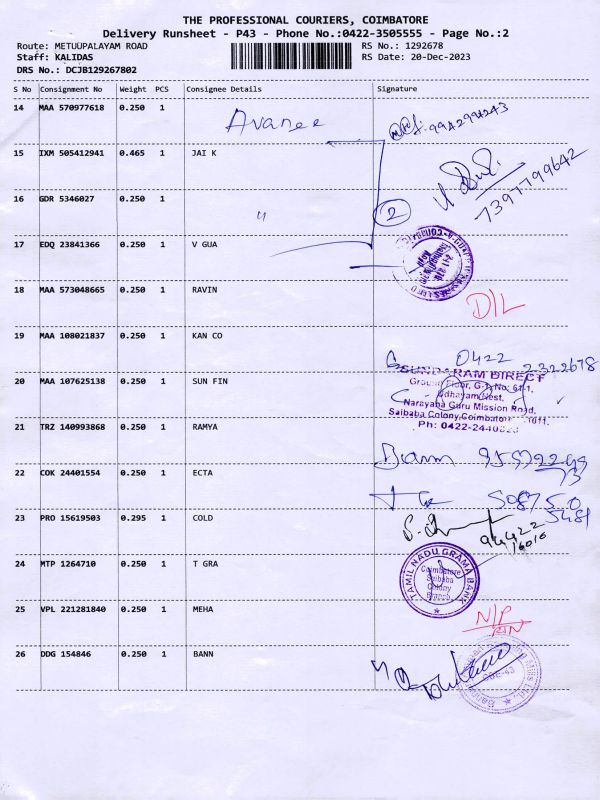 THE PROFESSIONAL COURIERS, COIMBATORE
Delivery Runsheet - P43 - Phone No.:0422-3505555 - Page No.:2
Route: METUUPALAYAM ROAD
RS No.: 1292678
Staff: KALIDAS
RS Date: 20-Dec-2023
DRS No.: DCJB129267802
S No Consignment No Weight PCS Consignee Details Signature
14 MAA 570977618 0.250 1 Avanee
9942994243
15 IXM 505412941 0.465 1 JAI K
7397799642
16 GDR 5346027 0.250 1 "
2
17 EDQ 23841366 0.250 1 V GUA
18 MAA 573048665 0.250 1 RAVIN
D/L
19 MAA 108021837 0.250 1 KAN CO
0422 2322678
20 MAA 107625138 0.250 1 SUN FIN
SUNDARAM DIRECT
Ground Floor, G-1, No: 61-1,
Udhayam Nest,
Narayana Guru Mission Road,
Saibaba Colony, Coimbatore 1011.
Ph: 0422-2440
21 TRZ 140993868 0.250 1 RAMYA
22 COK 24401554 0.250 1 ECTA
50875.0
5481
23 PRO 15619503 0.295 1 COLD
94422
16016
24 MTP 1264710 0.250 1 T GRA
TAMIL NADU GRAMA BANK
Coimbatore
Saibaba
Colony
Branch
25 VPL 221281840 0.250 1 MEHA
N/P
26 DDG 154846 0.250 1 BANN
CBE-43